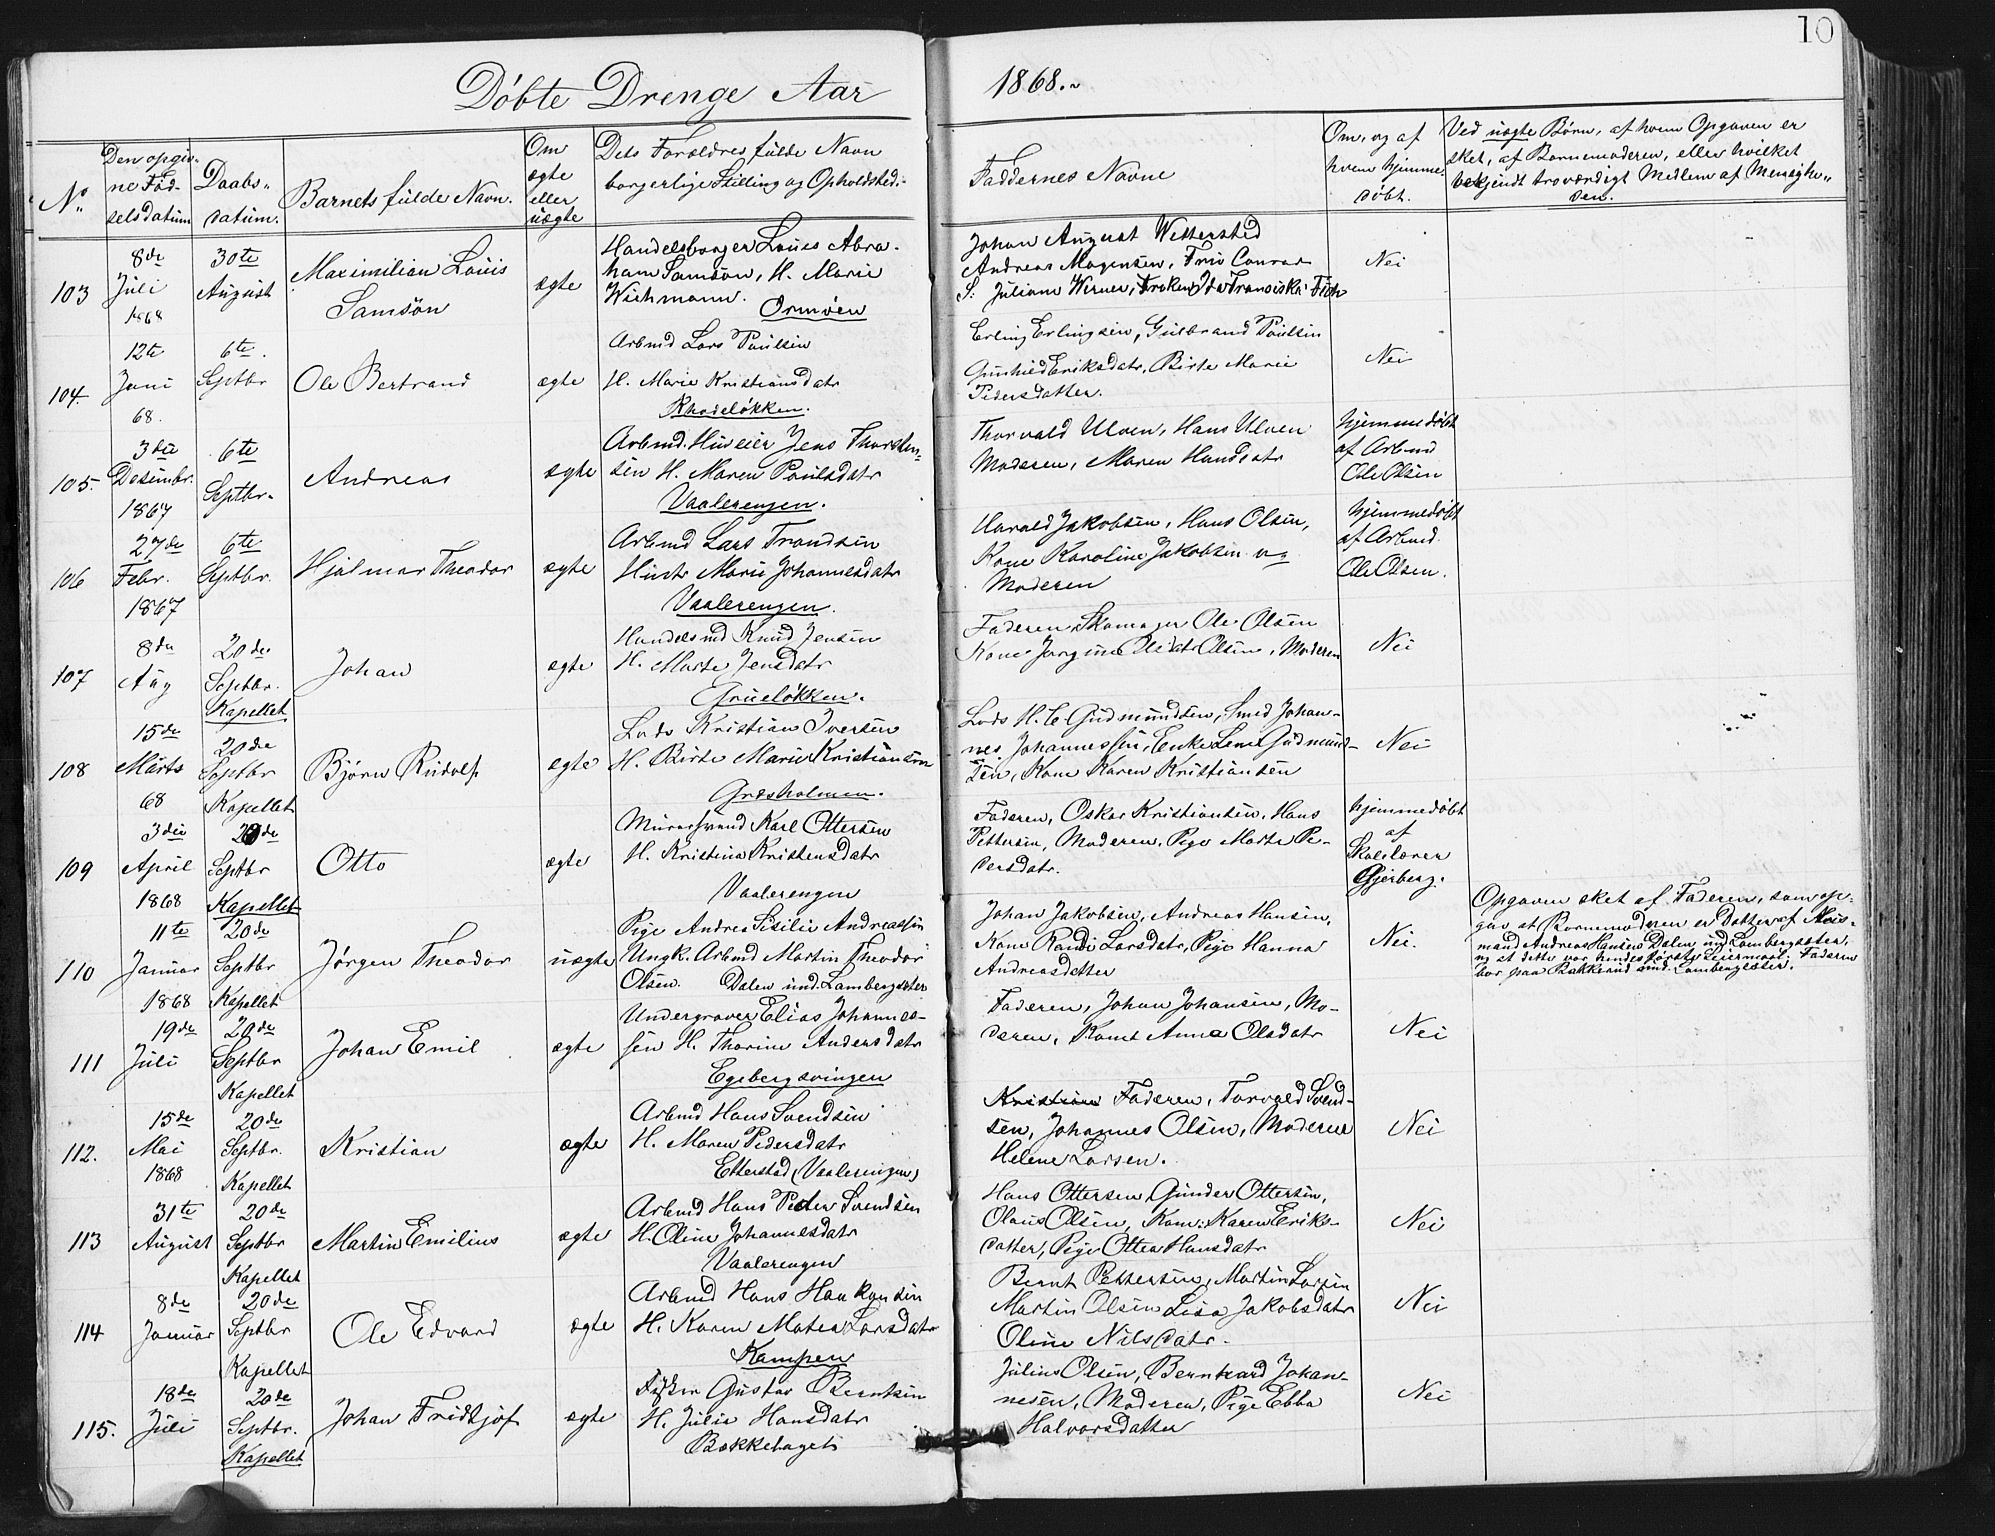 10
Døbte Drenge Aar 1868.
No
Den opgiv-
ne Fød-
selsdatum
Daabs-
datum.
Barnets fulde Navn.
Om
ægte
eller
uægte
Dets Forældres fulde Navn
borgerlige Stilling og Opholdsted.
Faddernes Navne
Om, og af
hvem hjemme-
døbt.
Ved uægte Børn, af hvem Opgaven er
sket, af Barnemoderen, eller hvilket
bekjendt troværdigt Medlem af Menighe-
den.
103
8de
Juli
1868
30te
August
Maximilian Louis
Samsøn
ægte
Handelsborger Louis Abra-
ham Samson, H. Marie
Wichmann.
Ormøen
Johan August Wetterstad
Andreas Mogensen, Frøs Conrad
S. Juliane Werner, Frøken Ida Fransiska Fich
Nei
104.
12te
Juni
68.
6te
Septbr
Ole Bertrand
ægte
Arbmd Lars Poulsen
H. Marie Kristiansdatr
Rhodeløkken.
Erling Erlingsen, Gulbrand Poulsen
Gunhild Eriksdatr, Birte Marie
Pedersdatter.
Nei
105.
3die
Desember.
1867
6te
Septbr.
Andreas
ægte
Arbmd. Huseier Jens Thorsten-
sen H. Maren Poulsdatr
Vaalerengen.
Thorvald Ulven, Hans Ulven
Moderen, Maren Hansdatr
hjemmedøbt
af Arbmd
Ole Olsen
106
27de
Febr.
1867
6te
Septbr.
Hjalmar Theodor
ægte
Arbmd Lars Trondsen
Hustr Marie Johannesdatr
Vaalerengen.
Harald Jakobsen, Hans Olsen,
Kone Karoline Jakobsen og
Moderen
hjemmedøbt
af Arbmd.
Ole Olsen.
107
8de
Aug
20de
Septbr.
Kapellet
Johan
ægte
Handelsmd Knud Jensen
H. Marte Jensdatr
Grueløkken.
Faderen, Skomager Ole Olsen
Kone Jørgine Olsdatr Olsen, Moderen
Nei
108
15de
Marts
68
20de
Septbr
Kapellet
Bjørn Rudolf
ægte
Lods Kristian Iversen
H. Birte Marie Kristiansen
Græsholmen.
Lods H. C. Gudmundsen, Smed Johan-
nes Johannessen, Enke Lene Gudmund-
sen, Kone Karen Kristiansen
Nei
109
3die
April
1868
20de
Septbr
Kapellet
Otto
ægte
Murersvend Karl Ottersen
H. Kristina Kristensdatr
Vaalerengen
Faderen, Oskar Kristiansen, Hans
Pettersen, Moderen, Pige Marte Pe-
dersdatr.
hjemmedøbt
af
Skolelærer
Gjerberg.
110
11te
Januar
1868
20de
Septbr
Kapellet
Jørgen Theodor
uægte
Pige Andrea Sisilie Andreassen
Ungk. Arbmd Martin Theodor
Olsen. Dalen und. Lambergsæter
Johan Jakobsen, Andreas Hansen,
Kone Randi Larsdatr, Pige Hanna
Andreasdatter
Nei.
Opgaven sket af Faderen, som op-
gav at Barnemoderen er Datter af Hus-
mand Andreas Hansen Dalen und Lambergsæter,
og at dette var hendes første Leiermaal. Faderen
bor paa Bakkerud und. Lambergsæter.
111
19de
Juli
20de
Septbr
Kapellet
Johan Emil
ægte
Undergraver Elias Johannes-
sen H. Thorine Andersdatr
Egebergsvingen
Faderen, Johan Johansen, Mo-
deren, Kone Anna Olsdatr
Nei
112.
15de
Mai
1868
20de
Septbr.
Kapellet
Kristian
ægte
Arbmd Hans Svendsen
H. Maren Pedersdatr
Etterstad (Vaalerengen)
Kristian Faderen, Torvald Svend-
sen, Johannes Olsen, Moderen
Helene Larsen.
Nei
113
31te
August
20de
Septbr
Kapellet
Martin Emilius
ægte
Arbmd Hans Peder Svendsen
H. Oline Johannesdatr
Vaalerengen
Hans Ottersen, Gunder Ottersen,
Olaus Olsen, Kone: Karen Eriks-
datter, Pige Ottea Hansdatr
Nei
114
8de
Januar
20de
Septbr
Kapellet
Ole Edvard
ægte
Arbmd Hans Haakonsen
H. Karen Matea Larsdatr
Kampen
Bernt Pettersen, Martin Larsen
Martin Olsen Lisa Jakobsdatr
Oline Nilsdatr.
Nei
115.
18de
Juli
20de
Septbr.
Kapellet
Johan Fridtjof
ægte
Fisker Gustav Berntsen
H. Julie Hansdatr
Bækkehaget
Julius Olsen, Bernhard Johan-
nesen, Moderen, Pige Ebba
Halvorsdatter
Nei